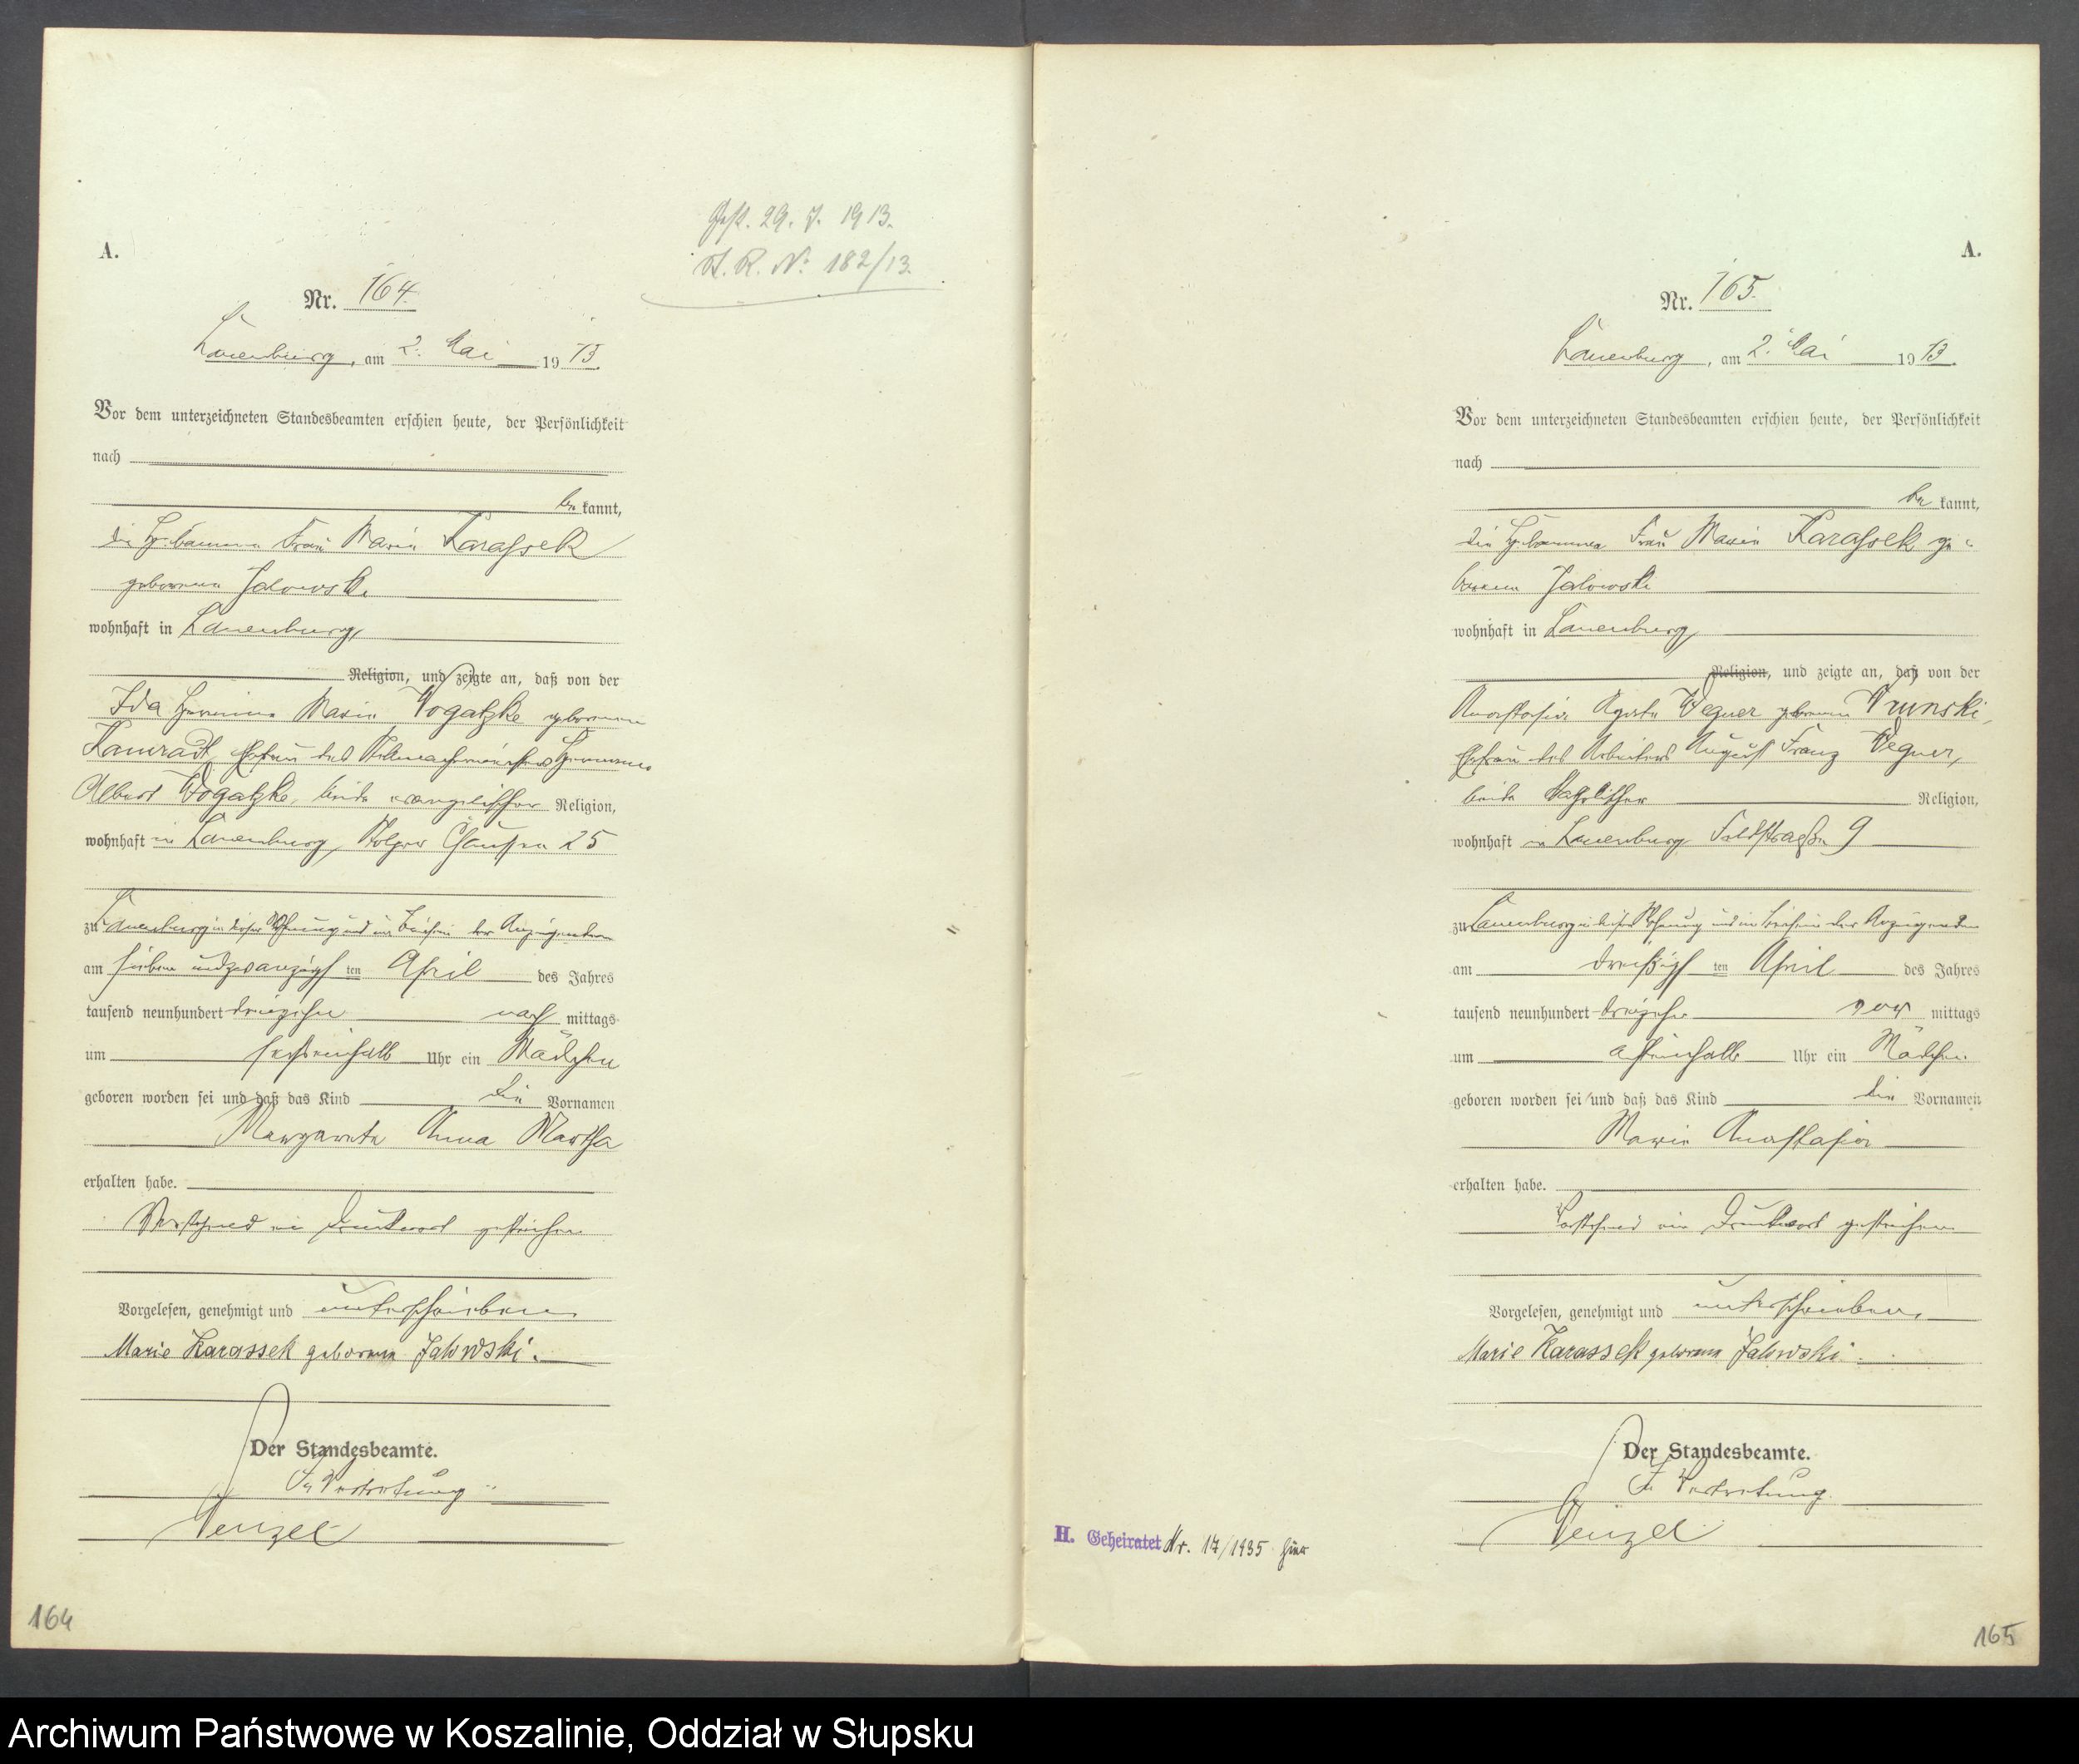 A.
Nr. 164.
Lauenburg, am 2. Mai 1913.
Vor dem unterzeichneten Standesbeamten erschien heute, der Persönlichkeit
nach
be kannt,
die Hebamme Frau Marie Karassek
geborene Jalowski
wohnhaft in Lauenburg,
Religion, und zeigte an, daß von der
Ida Hermine Marie Wogatzke geborenen
Kamradt, Ehefrau des Hermann
Albert Wogatzke, beide evangelischer Religion,
wohnhaft in Lauenburg, Stolper Chaussee 25
zu Lauenburg in dieser Wohnung und im Beisein der Anzeigenden
am sieben undzwanzigsten April des Jahres
tausend neunhundert dreizehn nach mittags
um sechseinhalb Uhr ein Mädchen
geboren worden sei und daß das Kind die Vornamen
Margarete Anna Martha
erhalten habe.
Vorstehend ein Druckwort gestrichen
Vorgelesen, genehmigt und unterschrieben
Marie Karassek geborene Jalowski.
Der Standesbeamte.
In Vertretung
Wenzel
164
Gest. 29. 7. 1913.
St. R. No: 182/13.
A.
Nr. 165.
Lauenburg, am 2. Mai 1913.
Vor dem unterzeichneten Standesbeamten erschien heute, der Persönlichkeit
nach
be kannt,
die Hebamme Frau Marie Karassek ge-
borene Jalowski
wohnhaft in Lauenburg,
Religion, und zeigte an, daß von der
Anastasia Agata Wegner geborenen Wrunski,
Ehefrau des Arbeiters August Franz Wegner,
beide katholischer Religion,
wohnhaft in Lauenburg Feldstraße 9
zu Lauenburg in dieser Wohnung und im Beisein der Anzeigenden
am dreißigsten April des Jahres
tausend neunhundert dreizehn vor mittags
um achteinhalb Uhr ein Mädchen
geboren worden sei und daß das Kind die Vornamen
Marie Anastasia
erhalten habe.
Vorstehend ein Druckwort gestrichen
Vorgelesen, genehmigt und unterschrieben
Marie Karassek geborene Jalowski.
Der Standesbeamte.
In Vertretung.
Wenzel
H. Geheiratet Nr. 17/1935 hier
165
Archiwum Państwowe w Koszalinie, Oddział w Słupsku